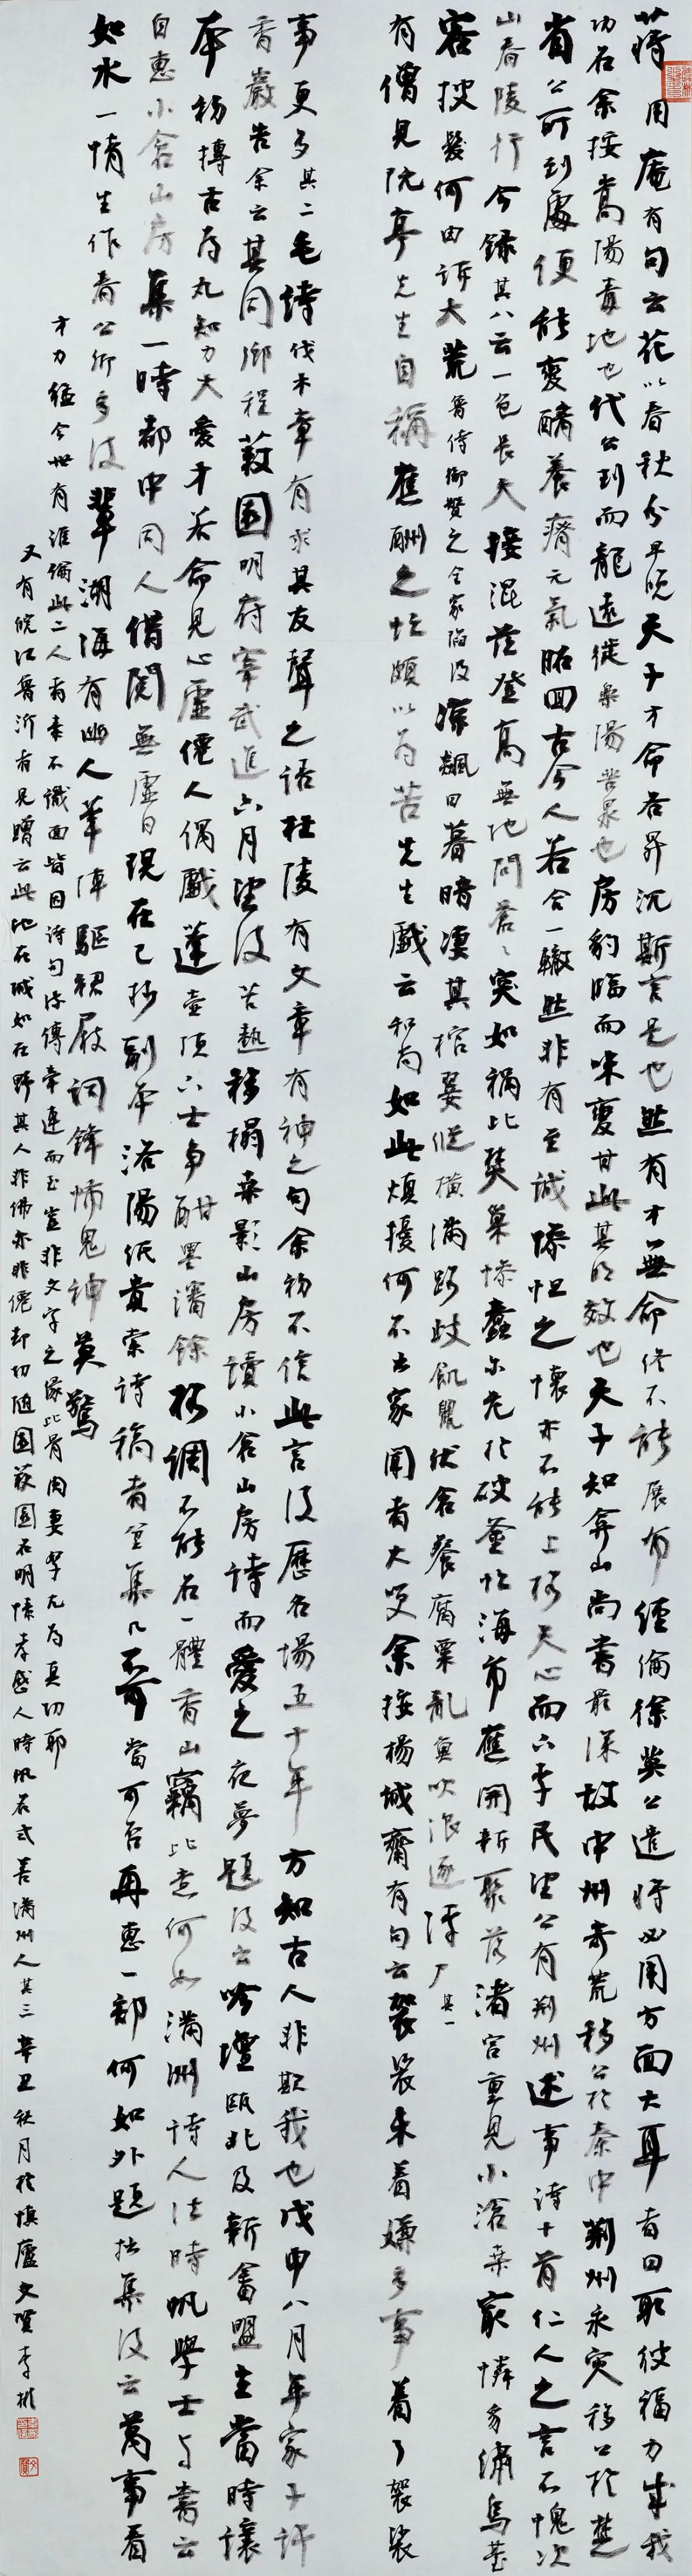 蒋用庵有句云花以春秋分早晚天子才命各昇沉斯言是也然有才無命终不能展布經倫徐英公遣將必用方面大耳者曰取彼福力成我
功名余按嵩陽毒地也代公到而龍遠徙樂陽苦泉也房豹臨而味變甘此其明效也天子知弇山尚書最深故中州奇荒移公於秦中荆州水灾移公於楚
省公所到處便能變醨養瘠元氣昭回古今人若合一轍然非有至誠惨怛之懷亦不能上格天心而下孚民望公有荆州述事诗十首仁人之言不愧次
山舂陵行今録其八云一色長天接混茫登高無地問蒼〻突如禍比焚巢惨蠢尔危於破釜忙海市應開新聚落渚宫重見小滄桑最憐多繡烏螯
客披髮何由訴大荒魯侍御贊之全家陷没凉飆日暮暗凄其棺翣縱横滿路歧飢鼠伏倉餐腐粟亂魚吹浪逐浮尸其一
有僧見阮亭先生自稱應酬之忙頗以為苦先生戲云和尚如此煩擾何不出家聞者大笑余按楊城齋有句云袈裟未着嫌多事着了袈裟
事更多其二毛诗伐木章有求其友聲之语杜陵有文章有神之句余初不信此言後歷名場五十年方知古人非欺我也戊申八月年家子許
香巖告余云其同鄉程蔌園明府宰武進六月望後苦熱移榻桑影山房讀小倉山房詩而愛之夜夢題後云吟壇甌北及新畬盟主當時讓
本初搏古為丸知力大愛才若命見心虚僊人偶戲蓬壺頂下士争酣墨瀋餘格調不能名一體香山竊比意何如滿洲詩人法時帆學士与書云
自惠小倉山房集一時都中同人借閲無虚日現在已抄副本洛陽纸貴索詩稿者坌集几不可當可否再惠一部何如外題拙集後云萬事看
如水一情生作春公所多後輩湖海有幽人筆陣驅裙屐詞鋒怖鬼神莫驚
才力猛今世有誰倫此二人者素不識面皆因诗句流傳牵連而至豈非文字之缘比骨肉妻孥尤为真切耶
又有皖江魯沂者見贈云此地在城如在野其人非佛亦非僊却切随園蔌園名明愫孝感人時帆名式善滿洲人其三辛丑秋月於慎廬文賢李彬